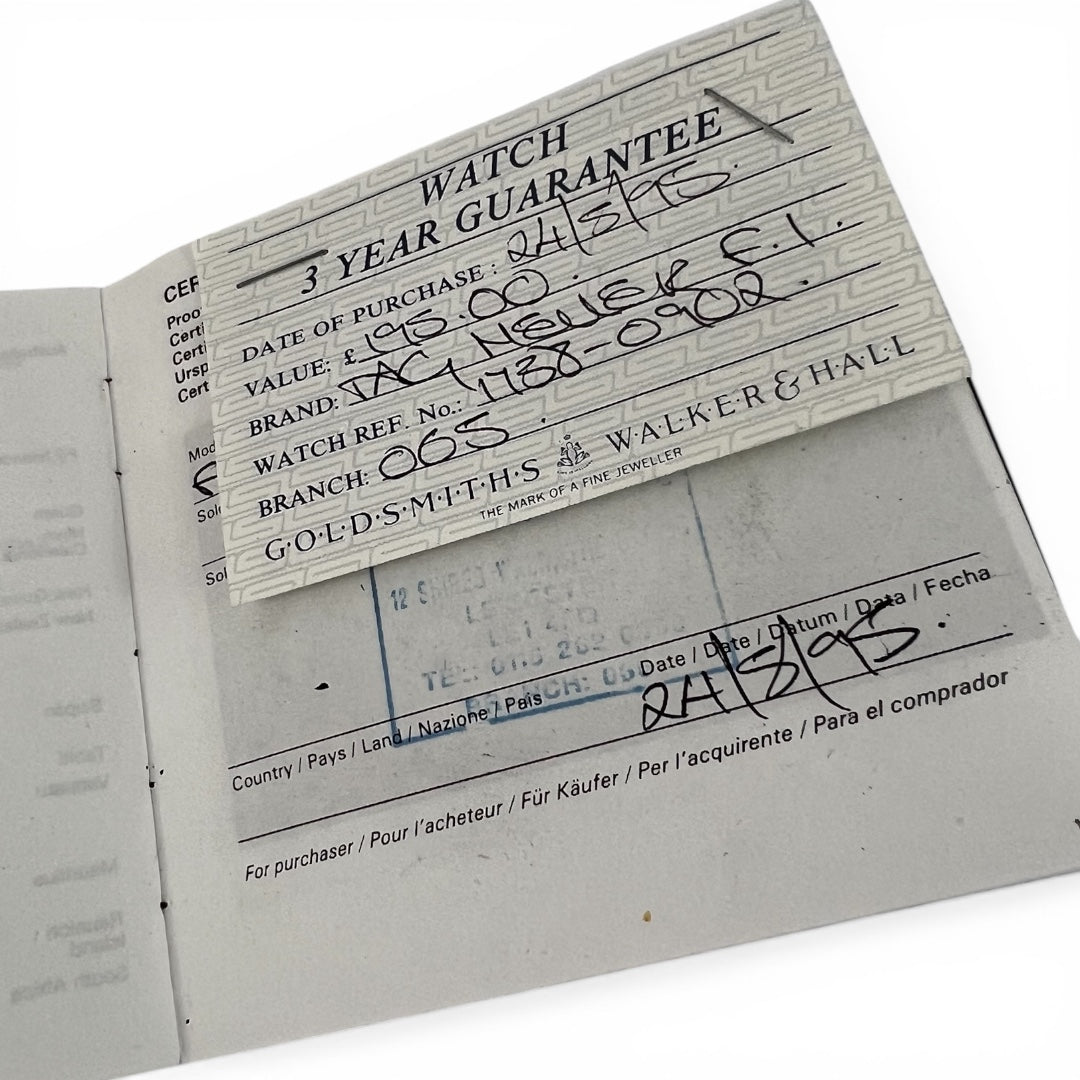 WATCH
3 YEAR GUARANTEE
DATE OF PURCHASE: 24/8/95.
VALUE: £195.00.
BRAND: TAG HEUER F.1.
WATCH REF. No.: 1738-0902.
BRANCH: 065.
G·O·L·D·S·M·I·T·H·S W·A·L·K·E·R & H·A·L·L
THE MARK OF A FINE JEWELLER
CER
Proo
Certi
Certi
Ursp
Cert
Mod
F
Sol
Sol
12
LE
TEL:
BRANCH:
Country / Pays / Land / Nazione / Pais
Date / Date / Datum / Data / Fecha
24/8/95.
For purchaser / Pour l'acheteur / Für Käufer / Per l'acquirente / Para el comprador